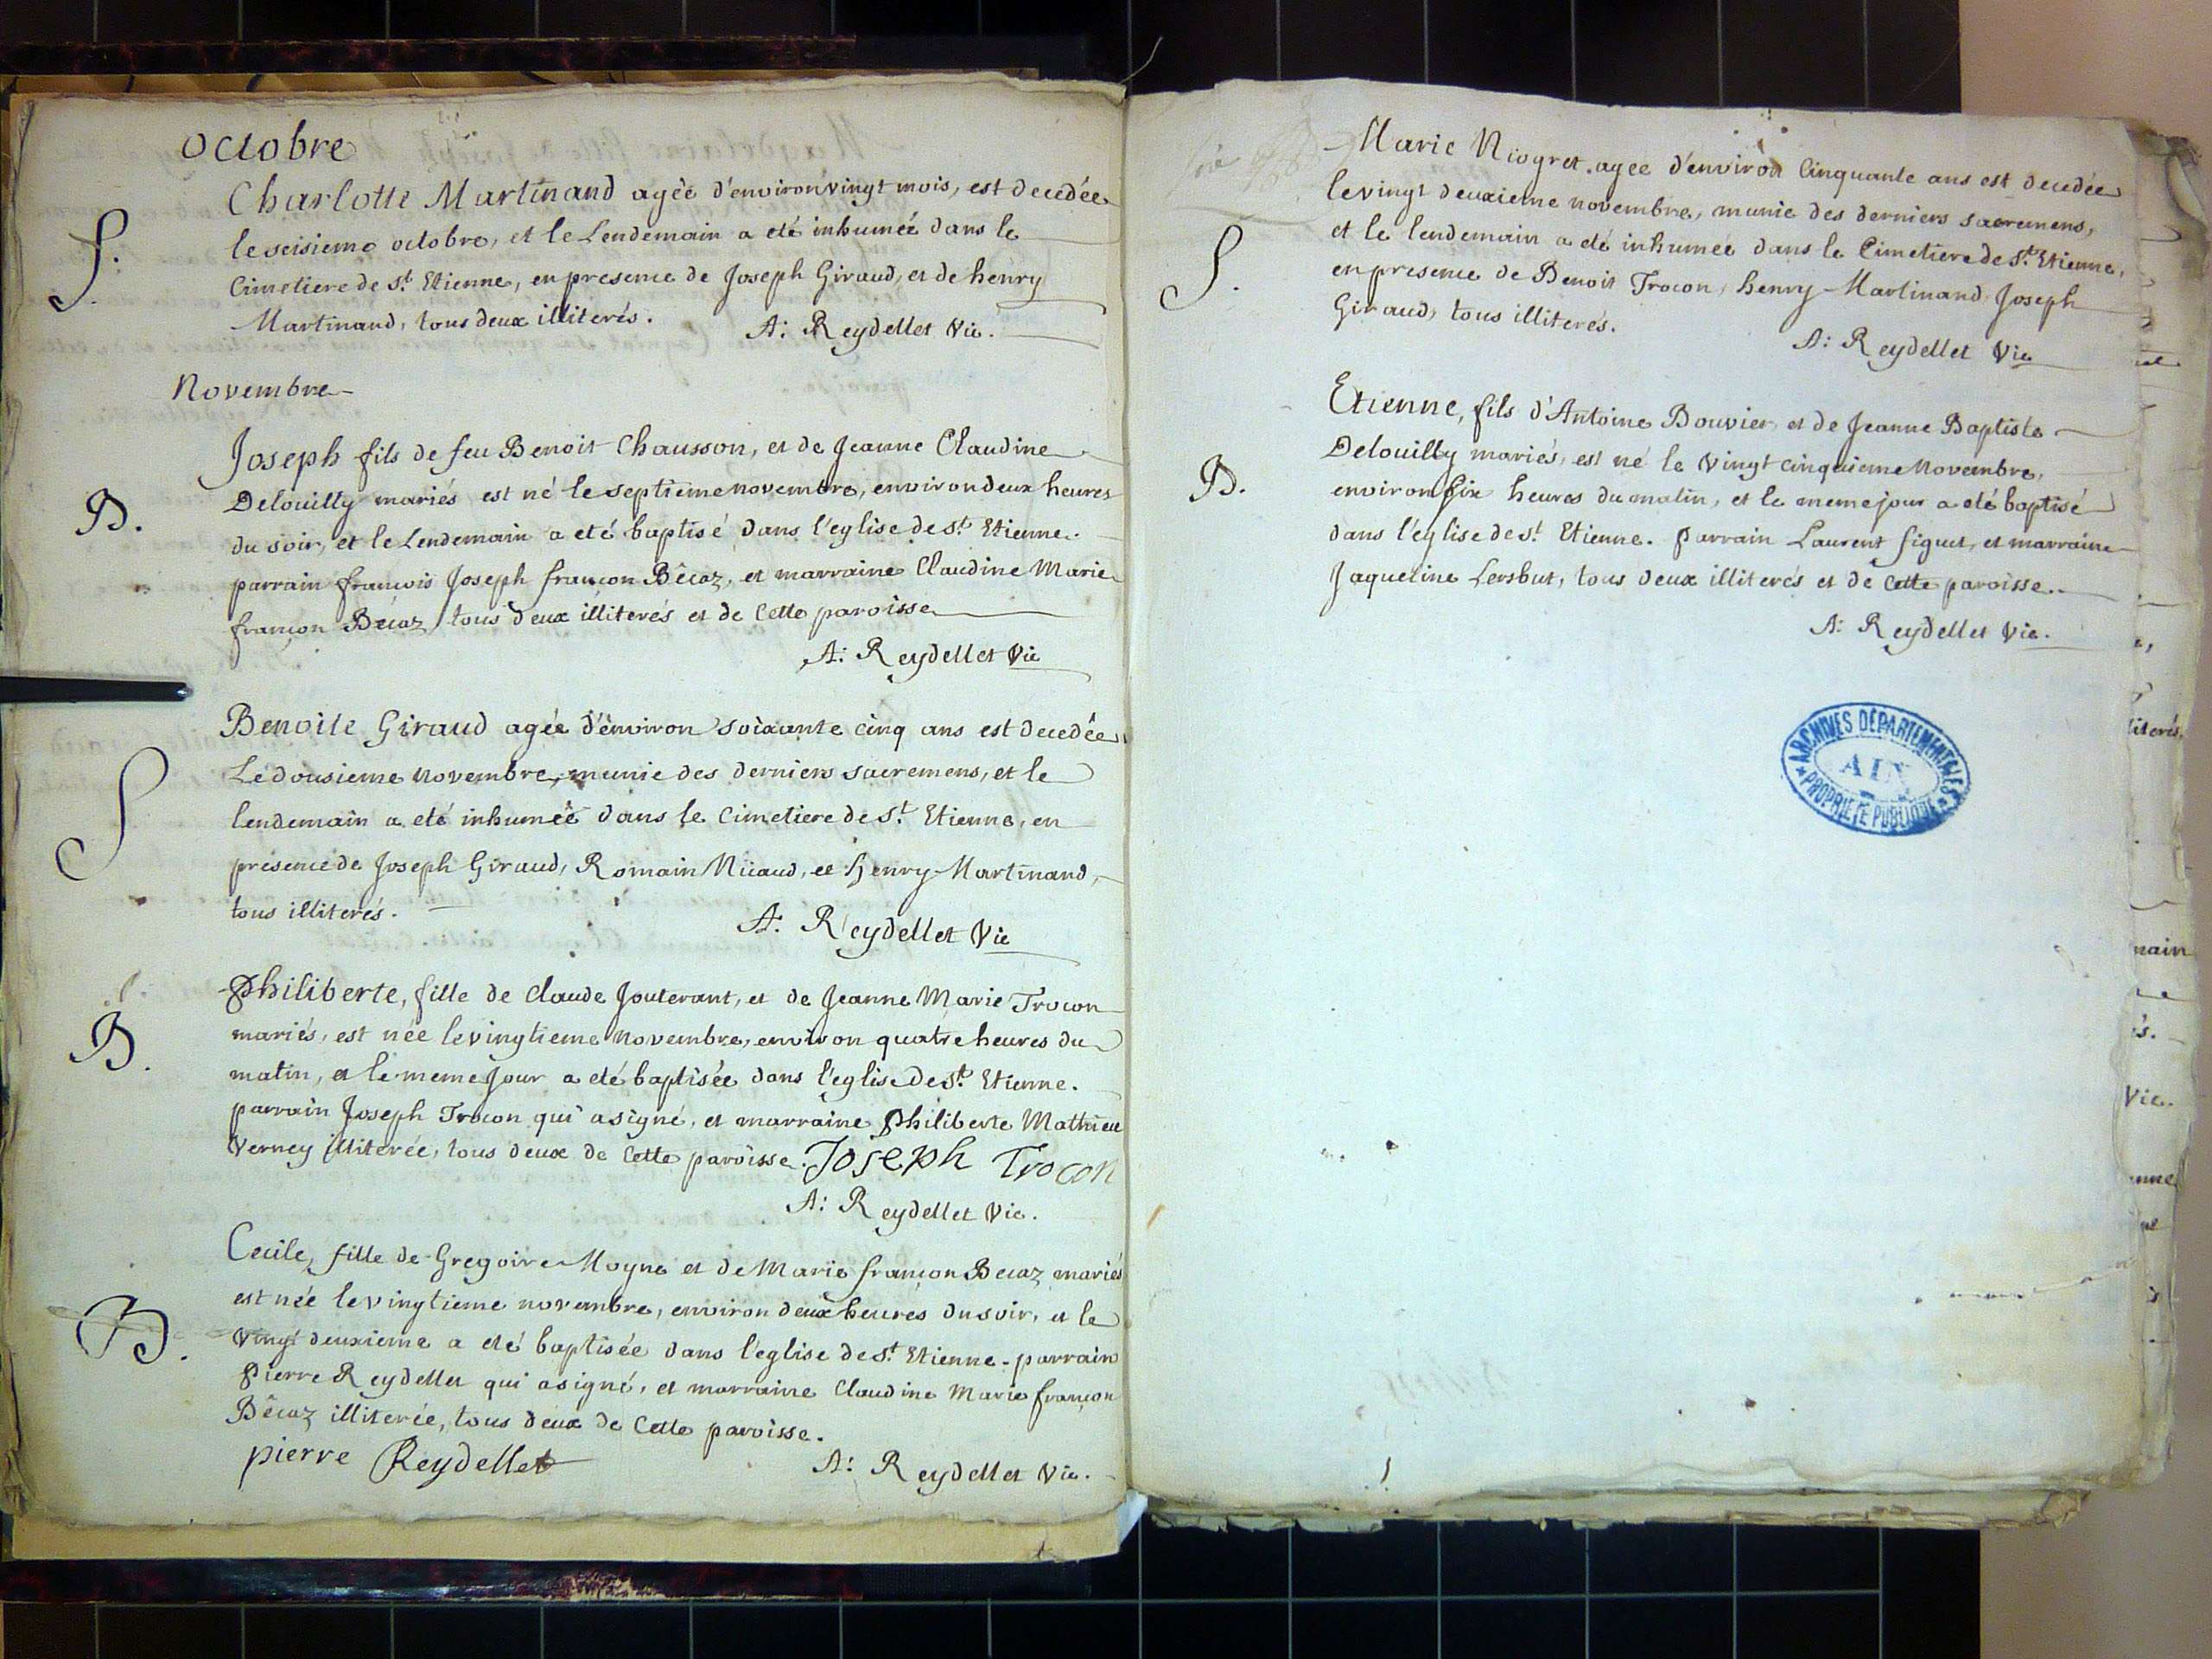 Octobre
S.
Charlotte Martinand agée d'environ vingt mois, est decedée
le seisieme octobre, et le Lendemain a eté inhumée dans le
Cimetiere de St. Etienne, en presence de Joseph Giraud, et de henry
Martinand, tous deux illiterés.
A: Reydellet Vic.
Novembre
B.
Joseph fils de feu Benoit Chausson, et de Jeanne Claudine
Delouilly mariés est né le septieme novembre, environ deux heures
du soir, et le Lendemain a eté baptisé dans l'eglise de St. Etienne.
parrain françois Joseph françon Bêcaz, et marraine Claudine Marie
françon Bécaz tous deux illiterés et de Cette paroisse
A: Reydellet Vic
S
Benoite Giraud agée d'environ soixante cinq ans est decedée
Le dousieme novembre, munie des derniers sacremens, et le
lendemain a eté inhumée dans le Cimetiere de St. Etienne, en
presence de Joseph Giraud, Romain Niiaud, et Henry Martinand,
tous illiterés.
A. Reydellet Vic
B.
Philiberte, fille de Claude Jouterant, et de Jeanne Marie Trocon
mariés, est née le vingtieme novembre, environ quatre heures du
matin, et le meme Jour a eté baptisée dans l'eglise de St. Etienne.
parrain Joseph Trocon qui a signé, et marraine Philiberte Mathieu
Verney illiterée, tous deux de Cette paroisse. Joseph Trocon
A: Reydellet Vic.
B.
Cecile, fille de Gregoire Moyne et de Marie françon Becaz mariés
est née le vingtieme novembre, environ deux heures du soir, et le
Vingt deuxieme a eté baptisée dans l'eglise de St. Etienne - parrain
Pierre Reydellet qui a signé, et marraine Claudine Marie françon
Bêcaz illiterée, tous deux de Cette paroisse.
pierre Reydellet
A: Reydellet Vic.
S.
Marie Niogret agée d'environ Cinquante ans est decedée
le vingt deuxieme novembre, munie des derniers sacremens,
et le lendemain a eté inhumée dans le Cimetiere de St. Etienne,
en presence de Benoit Trocon, henry Martinand Joseph
Giraud, tous illiterés.
A: Reydellet Vic
B.
Etienne, fils d'Antoine Bouvier, et de Jeanne Baptiste
Delouilly mariés, est né le Vingt cinquieme Novembre,
environ six heures du matin, et le meme jour a eté baptisé
dans l'eglise de St. Etienne. parrain Laurent figuet, et marraine
Jaqueline Lersbut, tous deux illiterés et de Cette paroisse.
A: Reydellet Vic.
ARCHIVES DÉPARTEMENTALES
AIN
PROPRIÉTÉ PUBLIQUE